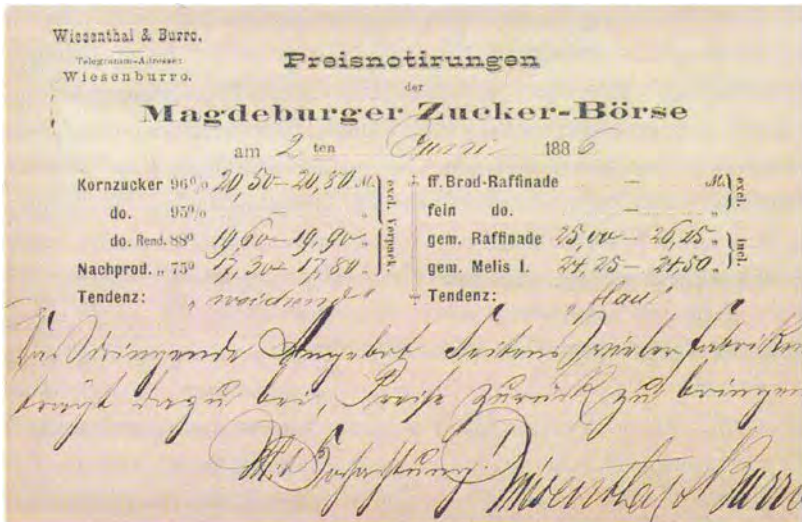 Wiesenthal & Burro.
Telegramm-Adresse:
Wiesenburro.
Preisnotirungen
der
Magdeburger Zucker-Börse
am 2 ten Juni 1886
Kornzucker 96% 20,50 – 20,80 M. } excl. Verpack.
do. 95% – „
do. Rend. 88° 19,60 – 19,90 „
Nachprod. „ 75° 17,30 – 17,80 „
Tendenz: „weichend“
ff. Brod-Raffinade – M. } excl.
fein do. – „
gem. Raffinade 25,00 – 26,25 „ } incl.
gem. Melis I. 24,25 – 24,50 „
Tendenz: „flau“
Das dringende Angebot Seitens vieler Fabriken
trägt dazu bei, Preise zurück zu bringen
Mit Hochachtung! Wiesenthal & Burro